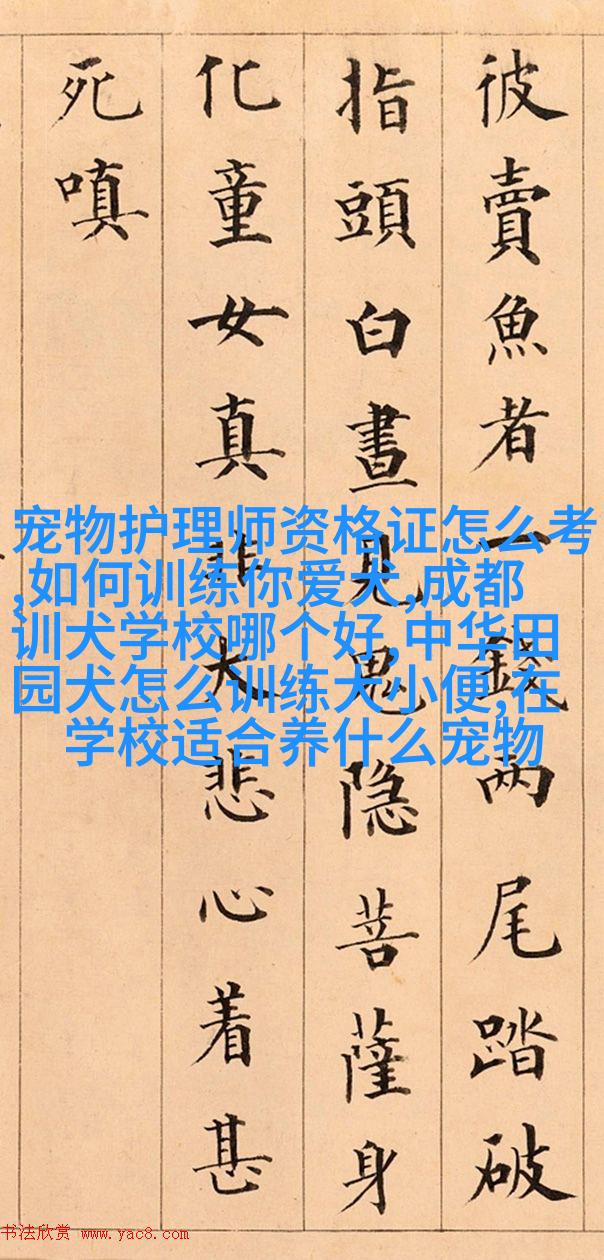 彼賣魚者一錢兩尾踏破
指頭白晝見鬼隐菩薩身
化童女真非大悲心着甚
死嗔
宠物护理师资格证怎么考
,如何训练你爱犬,成都
训犬学校哪个好,中华田
园犬怎么训练大小便,在
学校适合养什么宠物
书法欣赏 www.yac8.com